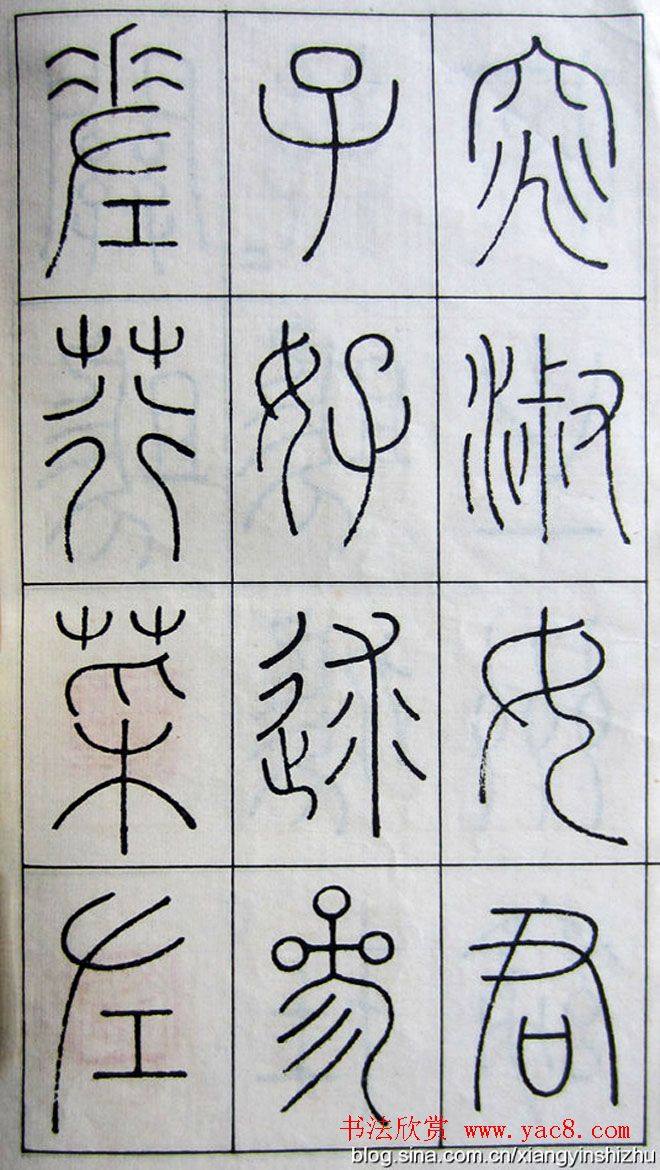 窕淑女君
子好逑參
差荇菜左
书法欣赏 www.yac8.com
blog.sina.com.cn/xiangyinshizhu